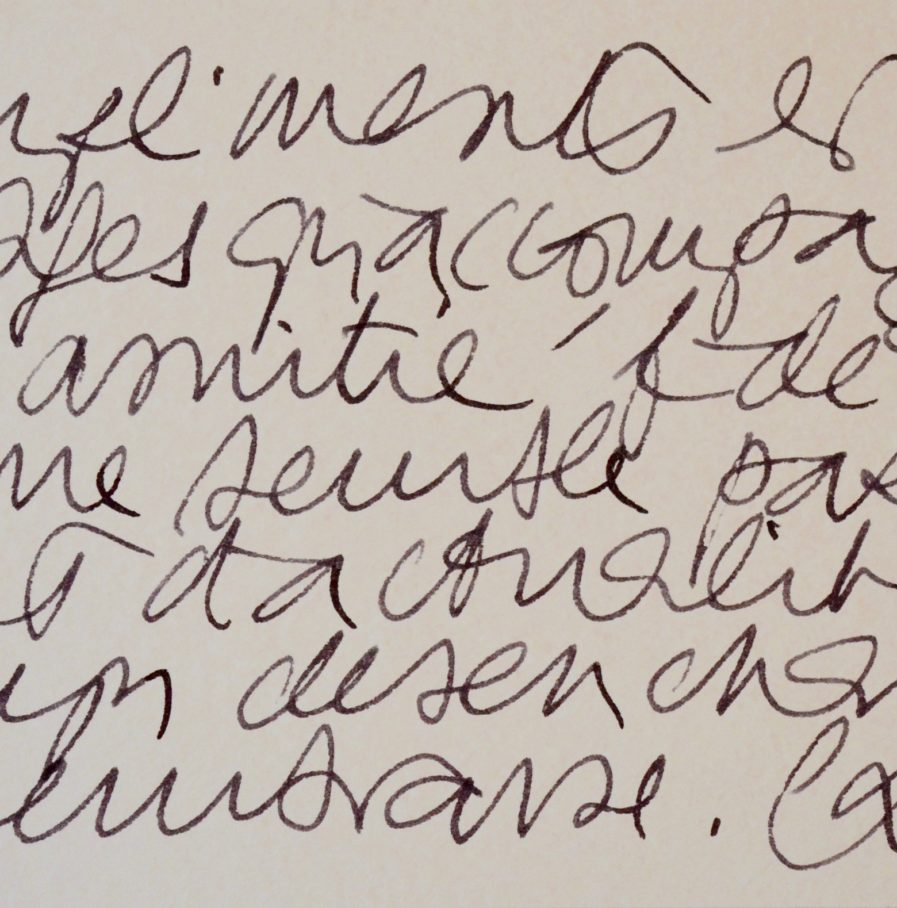 pliments et
ages qui accompa
amitié & de
me semble pas
et d'actualit
un desenchan
embrasse. Ca